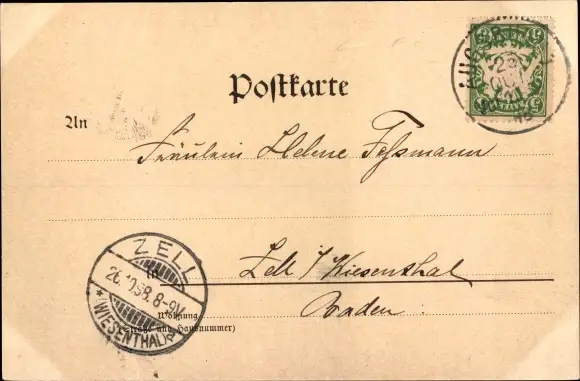 Postkarte
An
Fräulein Helene Fessmann
Zell i/Wiesenthal
Baden
ZELL
26.10.98.8-9V.
*(WIESENTHAL)*
Wohnung
(Straße und Hausnummer)